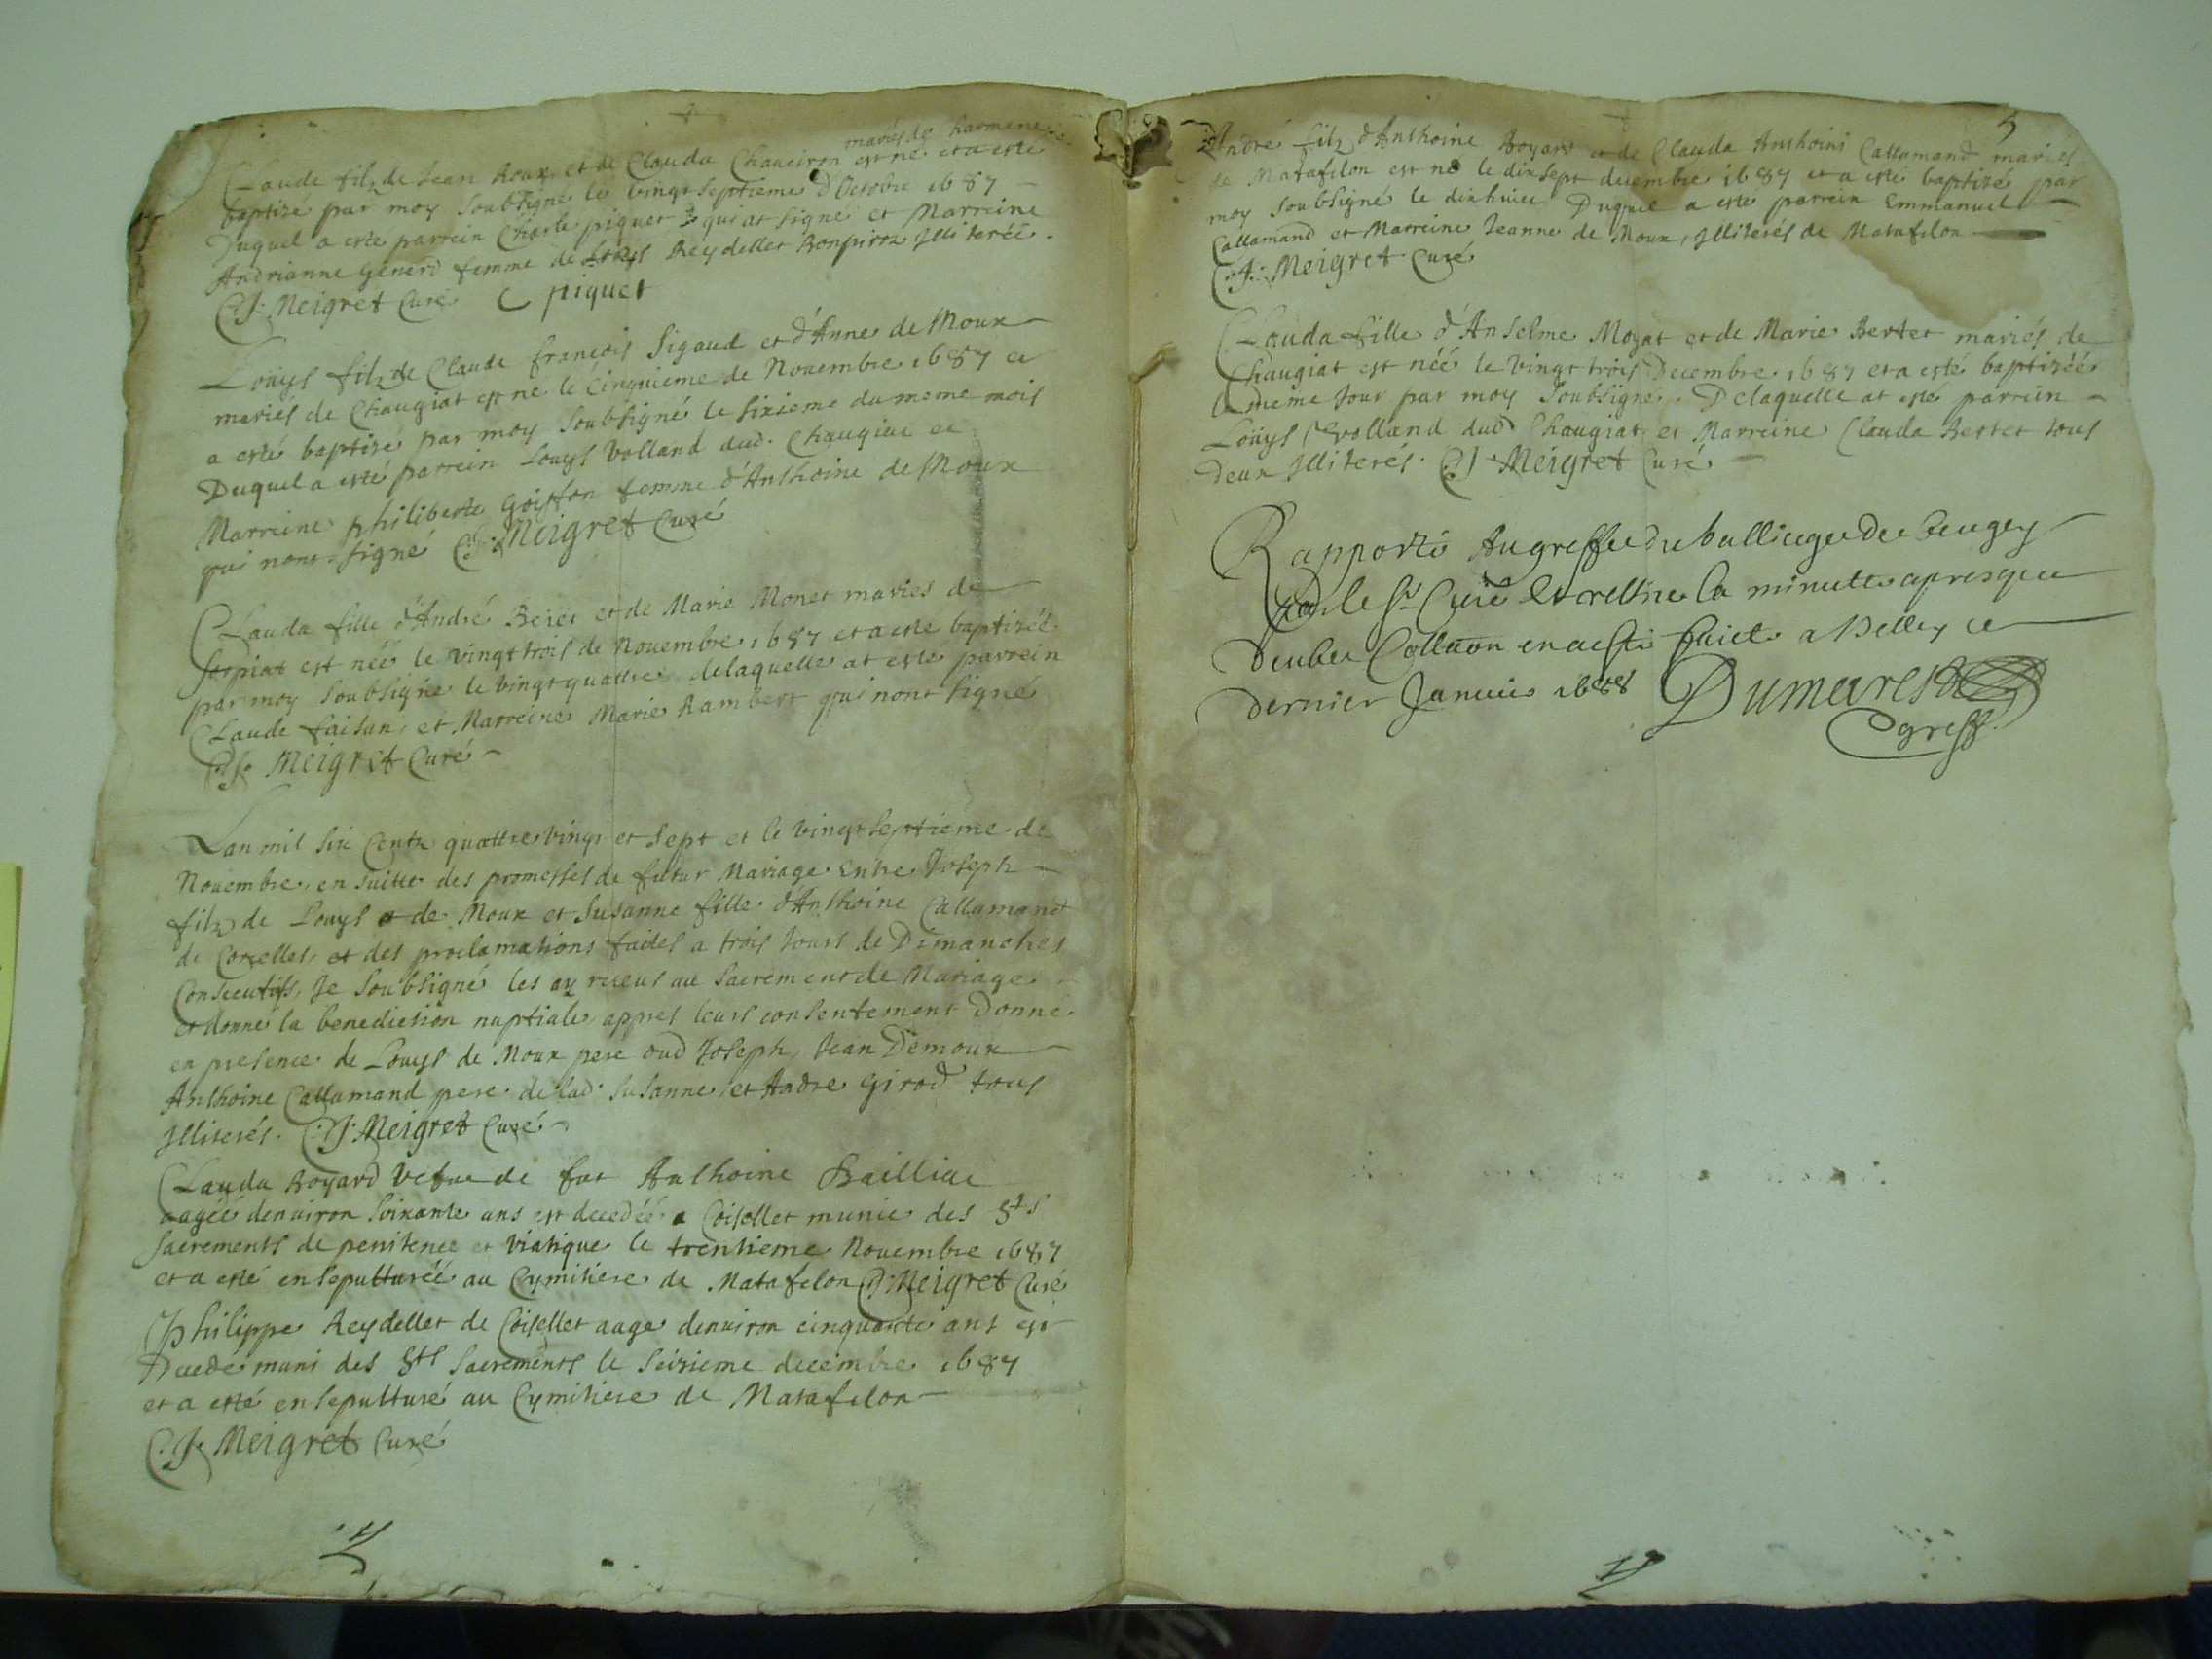 mariés de harmene
Claude filz de Jean Roux et de Clauda Chaveiron est né et a esté
baptizé par moy soubsigné le vingt septieme d'Octobre 1687
Duquel a esté parrein Charle piquet qui at signé et Marreine
Andrianne Generd femme de Louys Reydellet Bonpirra Illiterée.
C. J. Meigret Curé C piquet
Louys filz de Claude françois Sigaud et d'Anne de Moux
mariés de Chaugiat est ne le Cinquieme de Novembre 1687 et
a esté baptizé par moy soubsigné le sixieme du meme mois
Duquel a esté parrein Louys Volland dud. Chaugiat et
Marreine philiberte Goiffon femme d'Anthoine de Moux
qui nont signé C. J. Meigret Curé
Clauda fille d'André Beiet et de Marie Monet maries de
Serpiat est née le vingt trois de Novembre 1687 et a esté baptizéé
par moy soubsigné le vingt quattre delaquelle at esté parrein
Claude faisan, et Marreine Marie Rambert qui nont signé
C. J. Meigret Curé
Lan mil six Centz quattre vingt et sept et le vingt septieme de
Novembre, en suitte des promesses de futur Mariage Entre Joseph
filz de Louys de Moux et Susanne fille d'Anthoine Callamand
de Corcelles, et des proclamations faites a trois Jours de Dimanches
Consecutifs, Je soubsigné les ay receus au sacrement de Mariage
et donné la benediction nuptiale appres leurs consentement Donné
en presence de Louys de Moux pere dud Joseph, Jean Demoux
Anthoine Callamand pere de lad. Susanne et Andre Girod tous
Illiterés. C. J. Meigret Curé
Clauda Boyard vefue de fut Anthoine Bailliat
aagéé denuiron soixante ans est decedéé a Coisellet munie des Sts
sacrements de penitence et viatique le trentieme Novembre 1687
et a esté ensepultureé au Cymitiere de Matafelon C. J. Meigret Curé
Philippe Reydellet de Coisellet aage denuiron cinquante ans est
Decedé muni des Sts sacrements le seizieme decembre 1687
et a esté ensepulturé au Cymitiere de Matafelon
C. J. Meigret Curé
5
André filz d'Anthoine Boyard et de Clauda Anthoini Callamand mariés
de Matafelon est né le dixsept decembre 1687 et a esté baptizé par
moy soubsigné le dixhuict Duquel a esté parrein Emmanuel
Callamand et Marreine Jeanne de Moux, Illiterés de Matafelon
C. J. Meigret Curé
Clauda fille d'Anselme Moyat et de Marie Bertet mariés de
Chaugiat est néé le vingt trois Decembre 1687 et a esté baptizéé
le meme Jour par moy soubsigné. Delaquelle at esté parrein
Louys Volland dud Chaugiat et Marreine Clauda Bertet tous
deux Illiterés. C. J. Meigret Curé
Rapporté Au greffe du balliage de Beugey
par le Sr Curé Et retire la minutte apres que
Deube Collaon en a esté faicte a Belley ce
dernier Januier 1688 Dumarest
C greff.